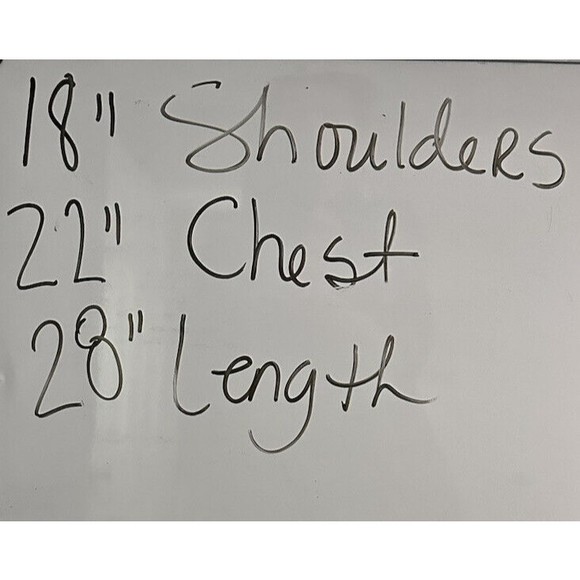 18" Shoulders
22" Chest
28" Length